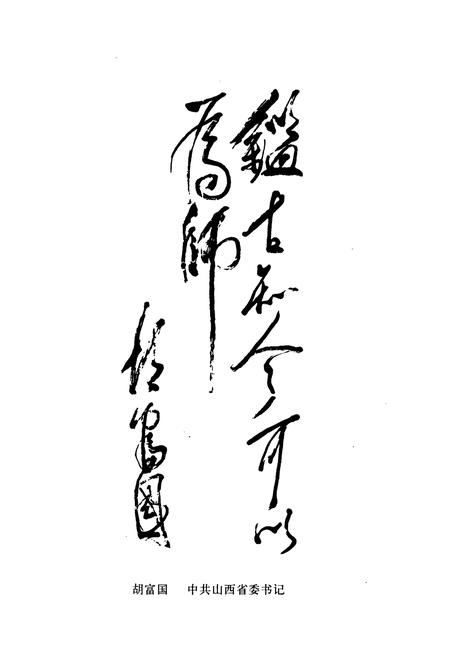 鑑古知今可以
為師
胡富國
胡富国 中共山西省委书记